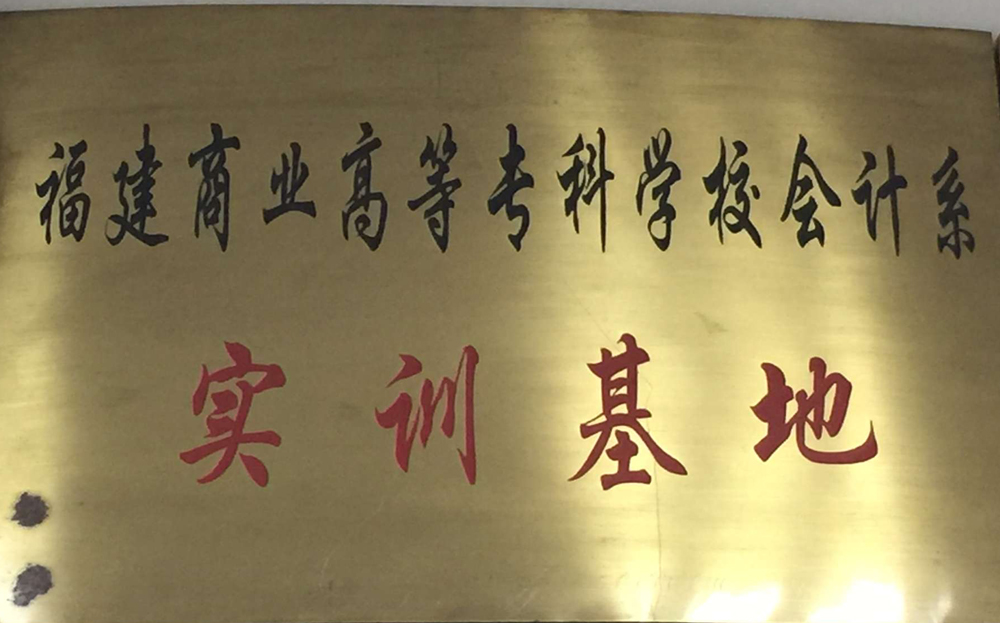 福建商业高等专科学校会计系
实训基地